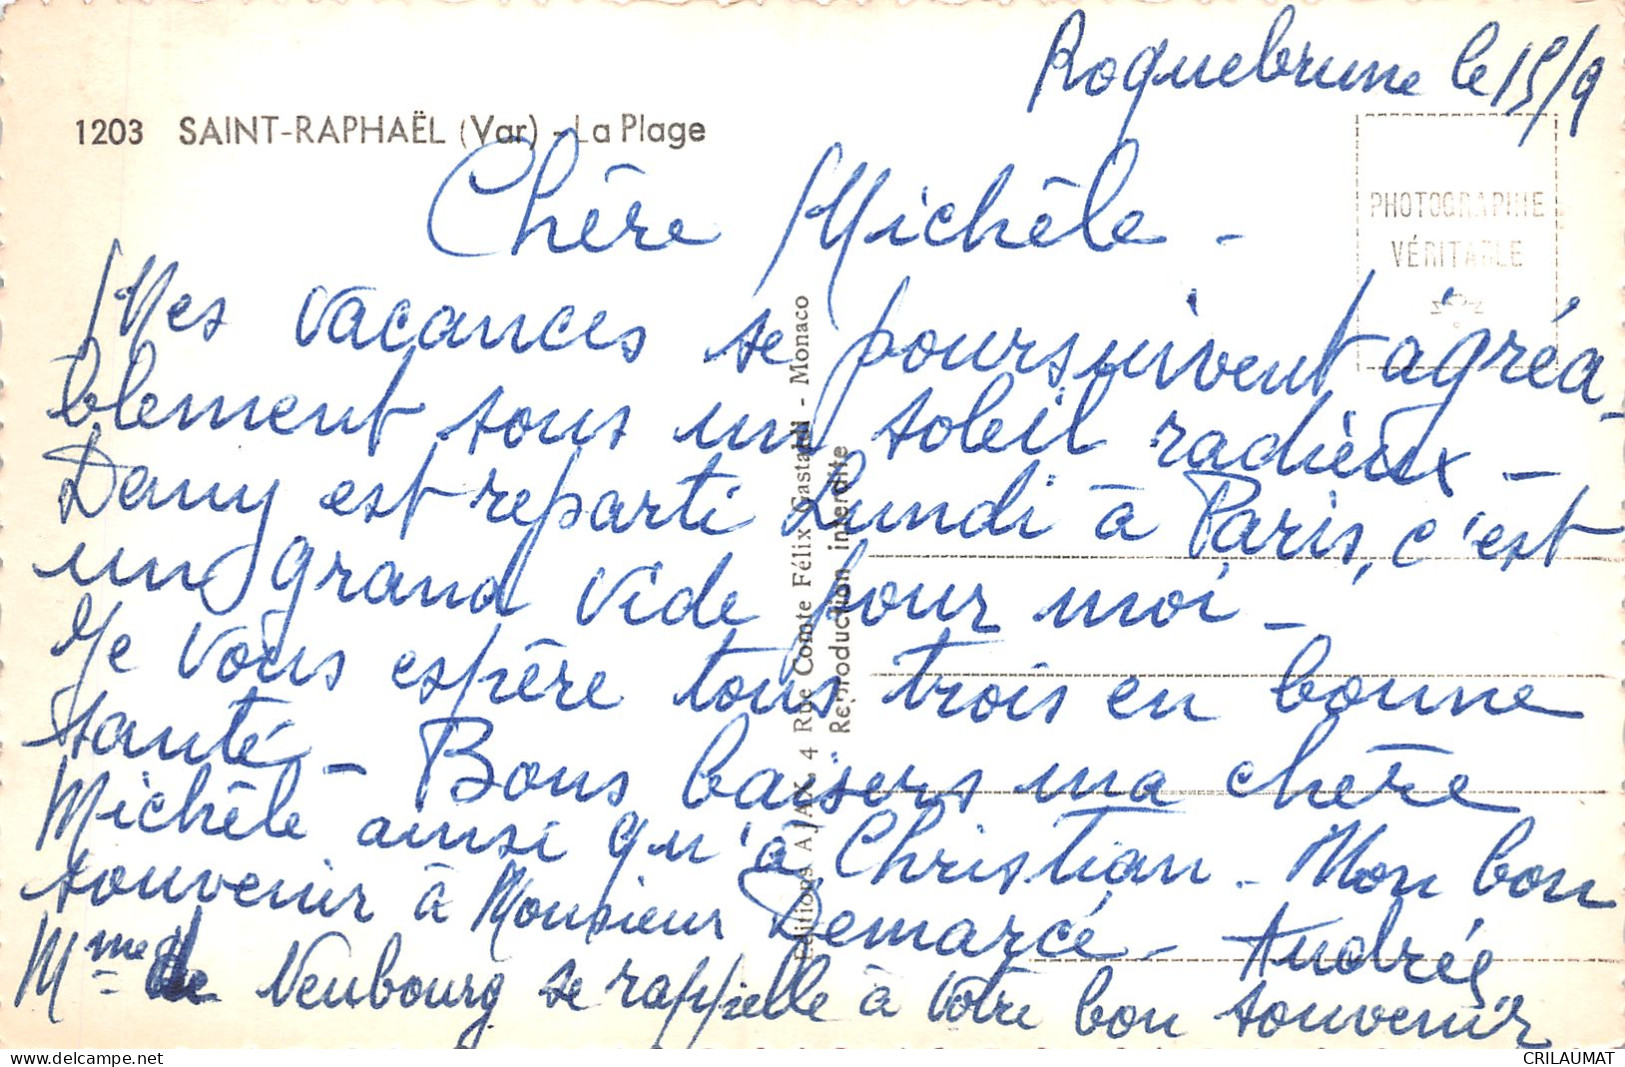 Roquebrune le 15/9
1203 SAINT-RAPHAËL (Var) - La Plage
PHOTOGRAPHIE
VÉRITABLE
Chère Michèle -
Mes vacances se poursuivent agréa-
blement sous un soleil radieux -
Dany est reparti Lundi à Paris, c'est
un grand vide pour moi -
Je vous espère tous trois en bonne
santé - Bons baisers ma chère
Michèle ainsi qu'à Christian - Mon bon
souvenir à Monsieur Demarcé - Andrée
Mme de Neubourg se rappelle à votre bon souvenir
Editions AJAX 4 Rue Comte Félix Gastaldi - Monaco
Reproduction interdite
CRILAUMAT